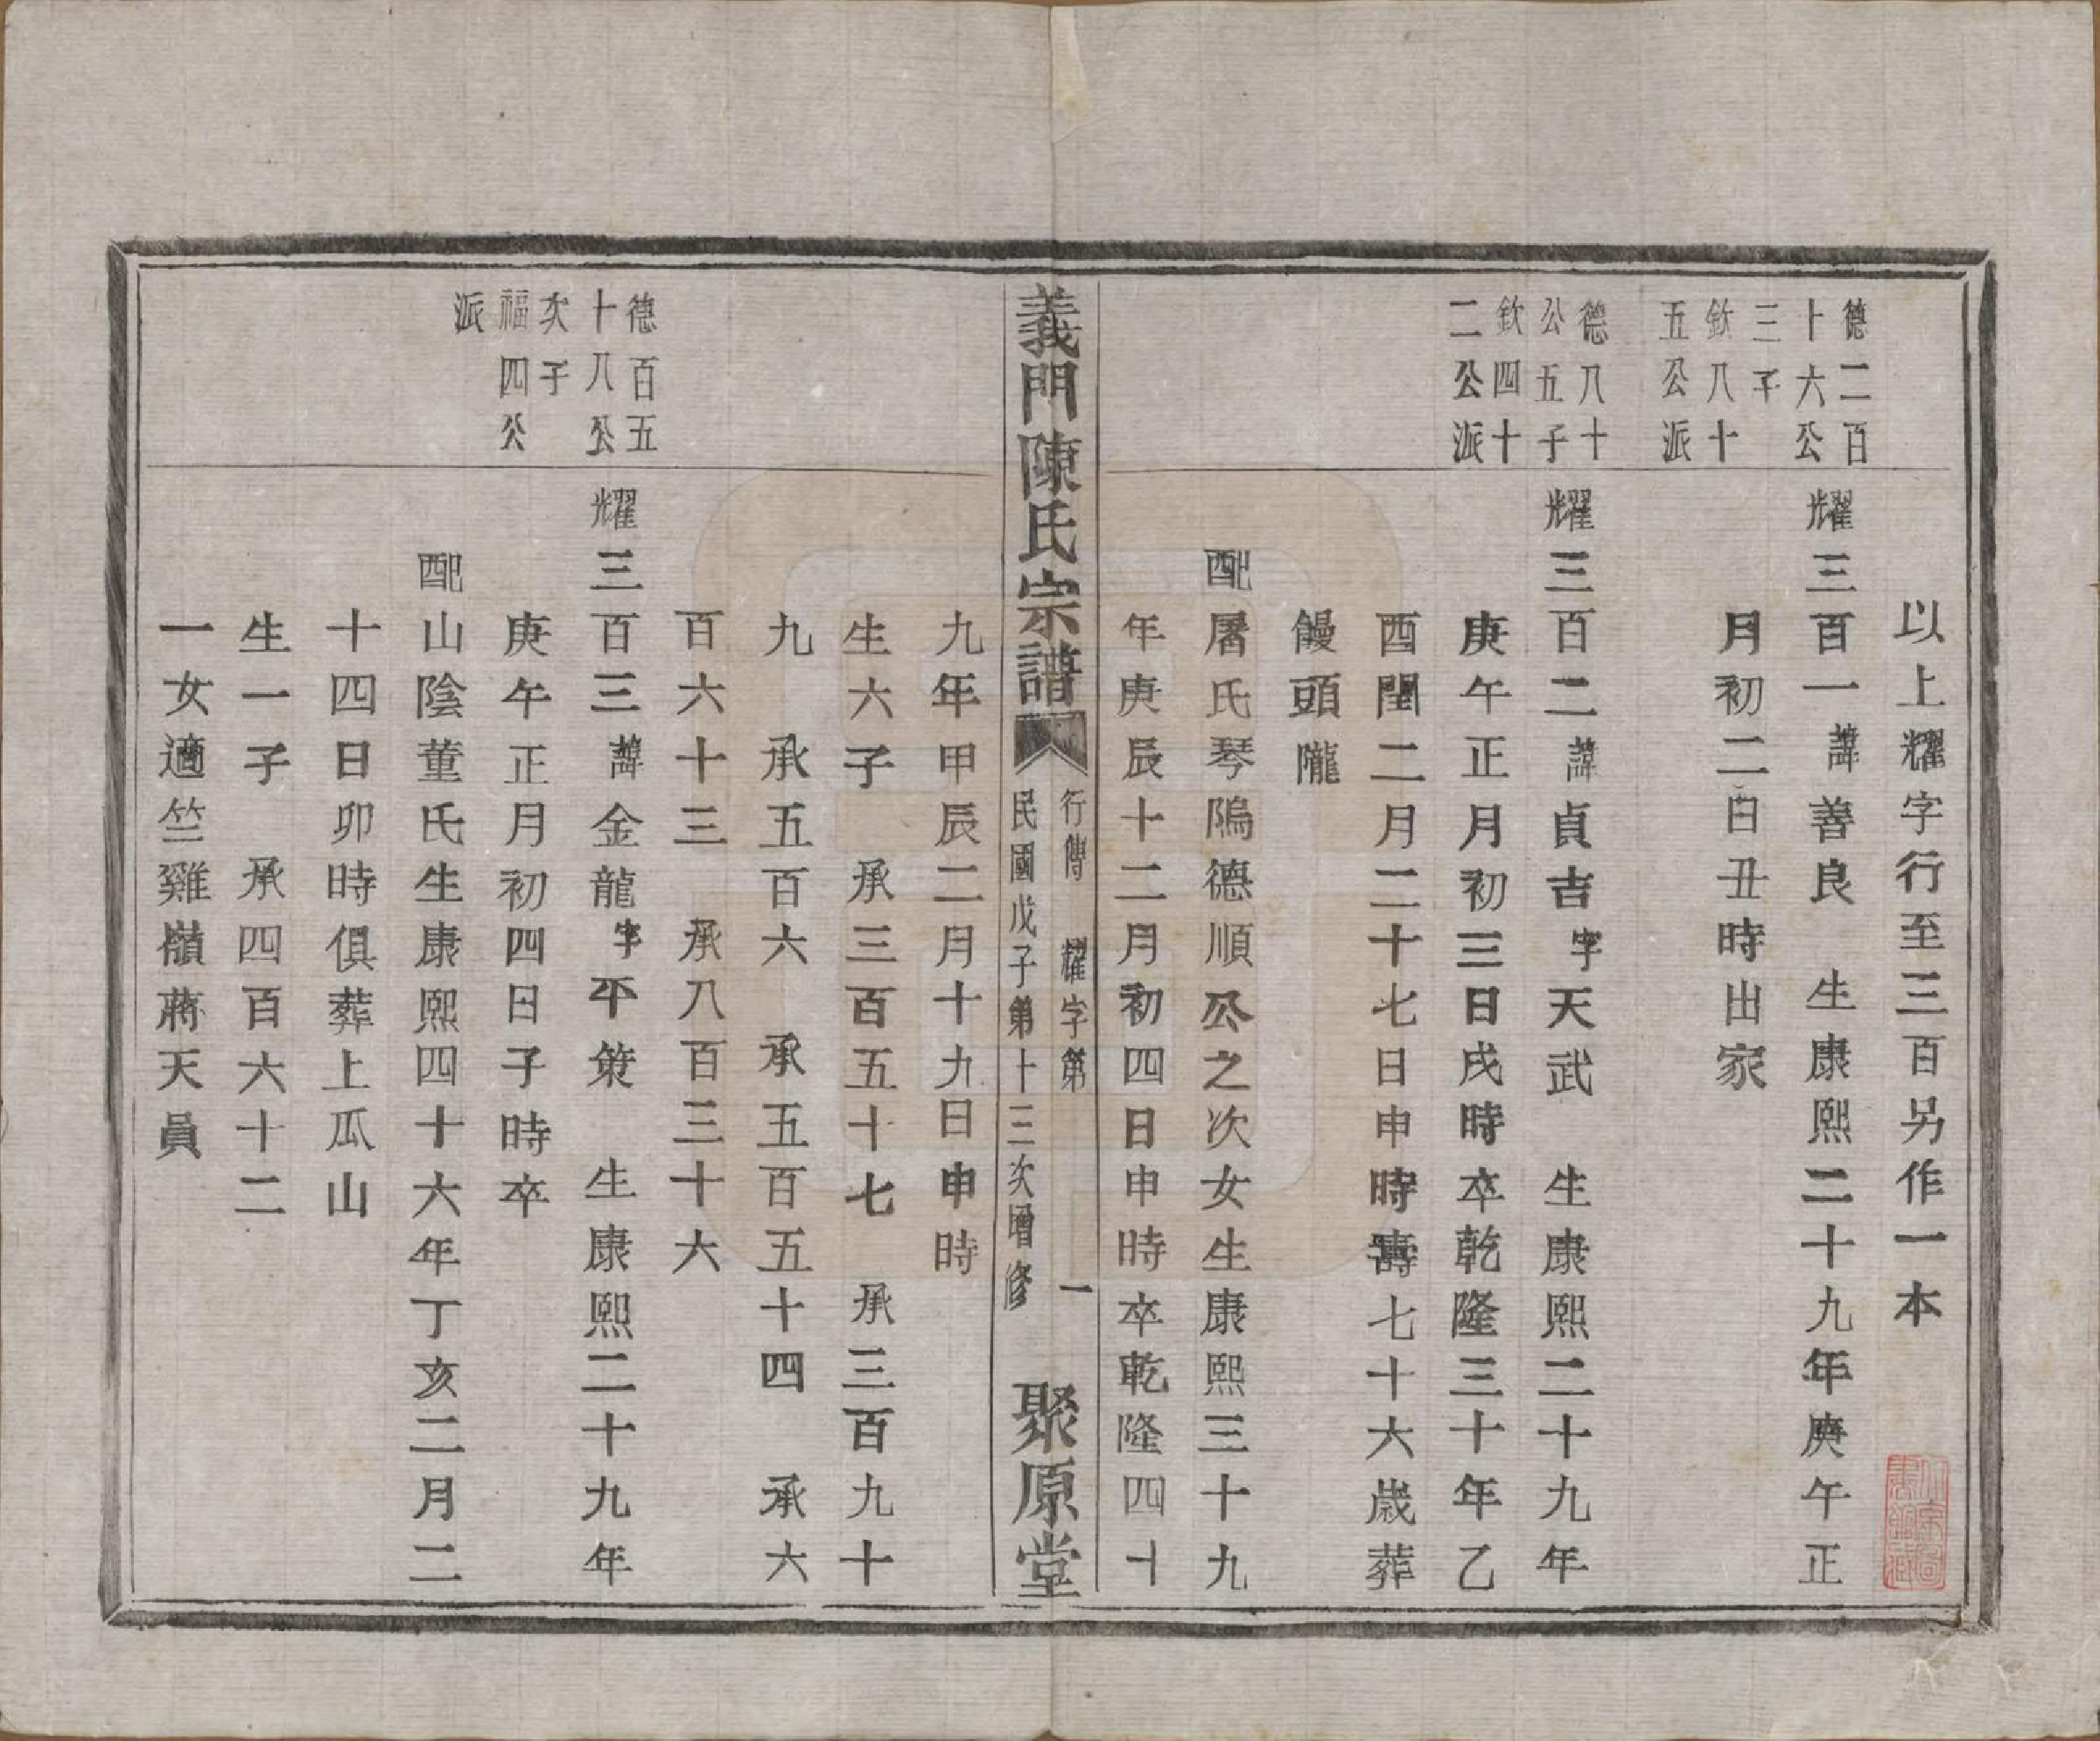 以上耀字行至三百另作一本
德二百
十六公
三子
欽八十
五公派
耀三百一諱善良　生康熙二十九年庚午正
月初二日丑時出家
德八十
公五子
欽四十
二公派
耀三百二諱貞吉字天武　生康熙二十九年
庚午正月初三日戌時卒乾隆三十年乙
酉閏二月二十七日申時壽七十六歲葬
饅頭隴
配屠氏琴隖德順公之次女生康熙三十九
年庚辰十二月初四日申時卒乾隆四十
義門陳氏宗譜
行傳　耀字第　一
民國戊子第十三次增修
聚原堂
九年甲辰二月十九日申時
生六子　承三百五十七　承三百九十
九　承五百六　承五百五十四　承六
百六十三　承八百三十六
德百五
十八公
次子
福四公
派
耀三百三諱金龍字平策　生康熙二十九年
庚午正月初四日子時卒
配山陰董氏生康熙四十六年丁亥二月二
十四日卯時俱葬上瓜山
生一子　承四百六十二
一女適竺雞嶺蔣天員